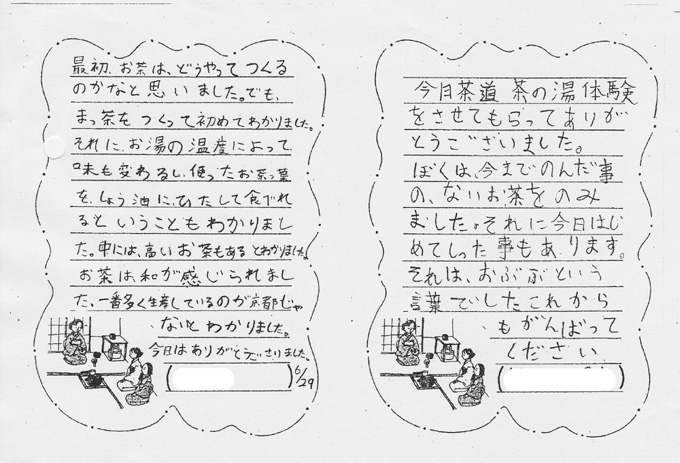 最初、お茶は、どうやってつくる
のかなと思いました。でも、
まっ茶をつくって初めてわかりました。
それに、お湯の温度によって
味も変わるし、使ったお茶っ葉
を、しょう油に、ひたして食べれ
るということもわかりまし
た。中には、高いお茶もあるとわかりました。
お茶は、和が感じられまし
た。一番多く生産しているのが京都じゃ
ないとわかりました。
今日はありがとうございました。
6/29
今日茶道 茶の湯体験
をさせてもらってありが
とうございました。
ぼくは、今までのんだ事
の、ないお茶をのみ
ました。それに今日はじ
めてしった事もあります。
それは、おぶぶという
言葉でしたこれから
もがんばって
ください